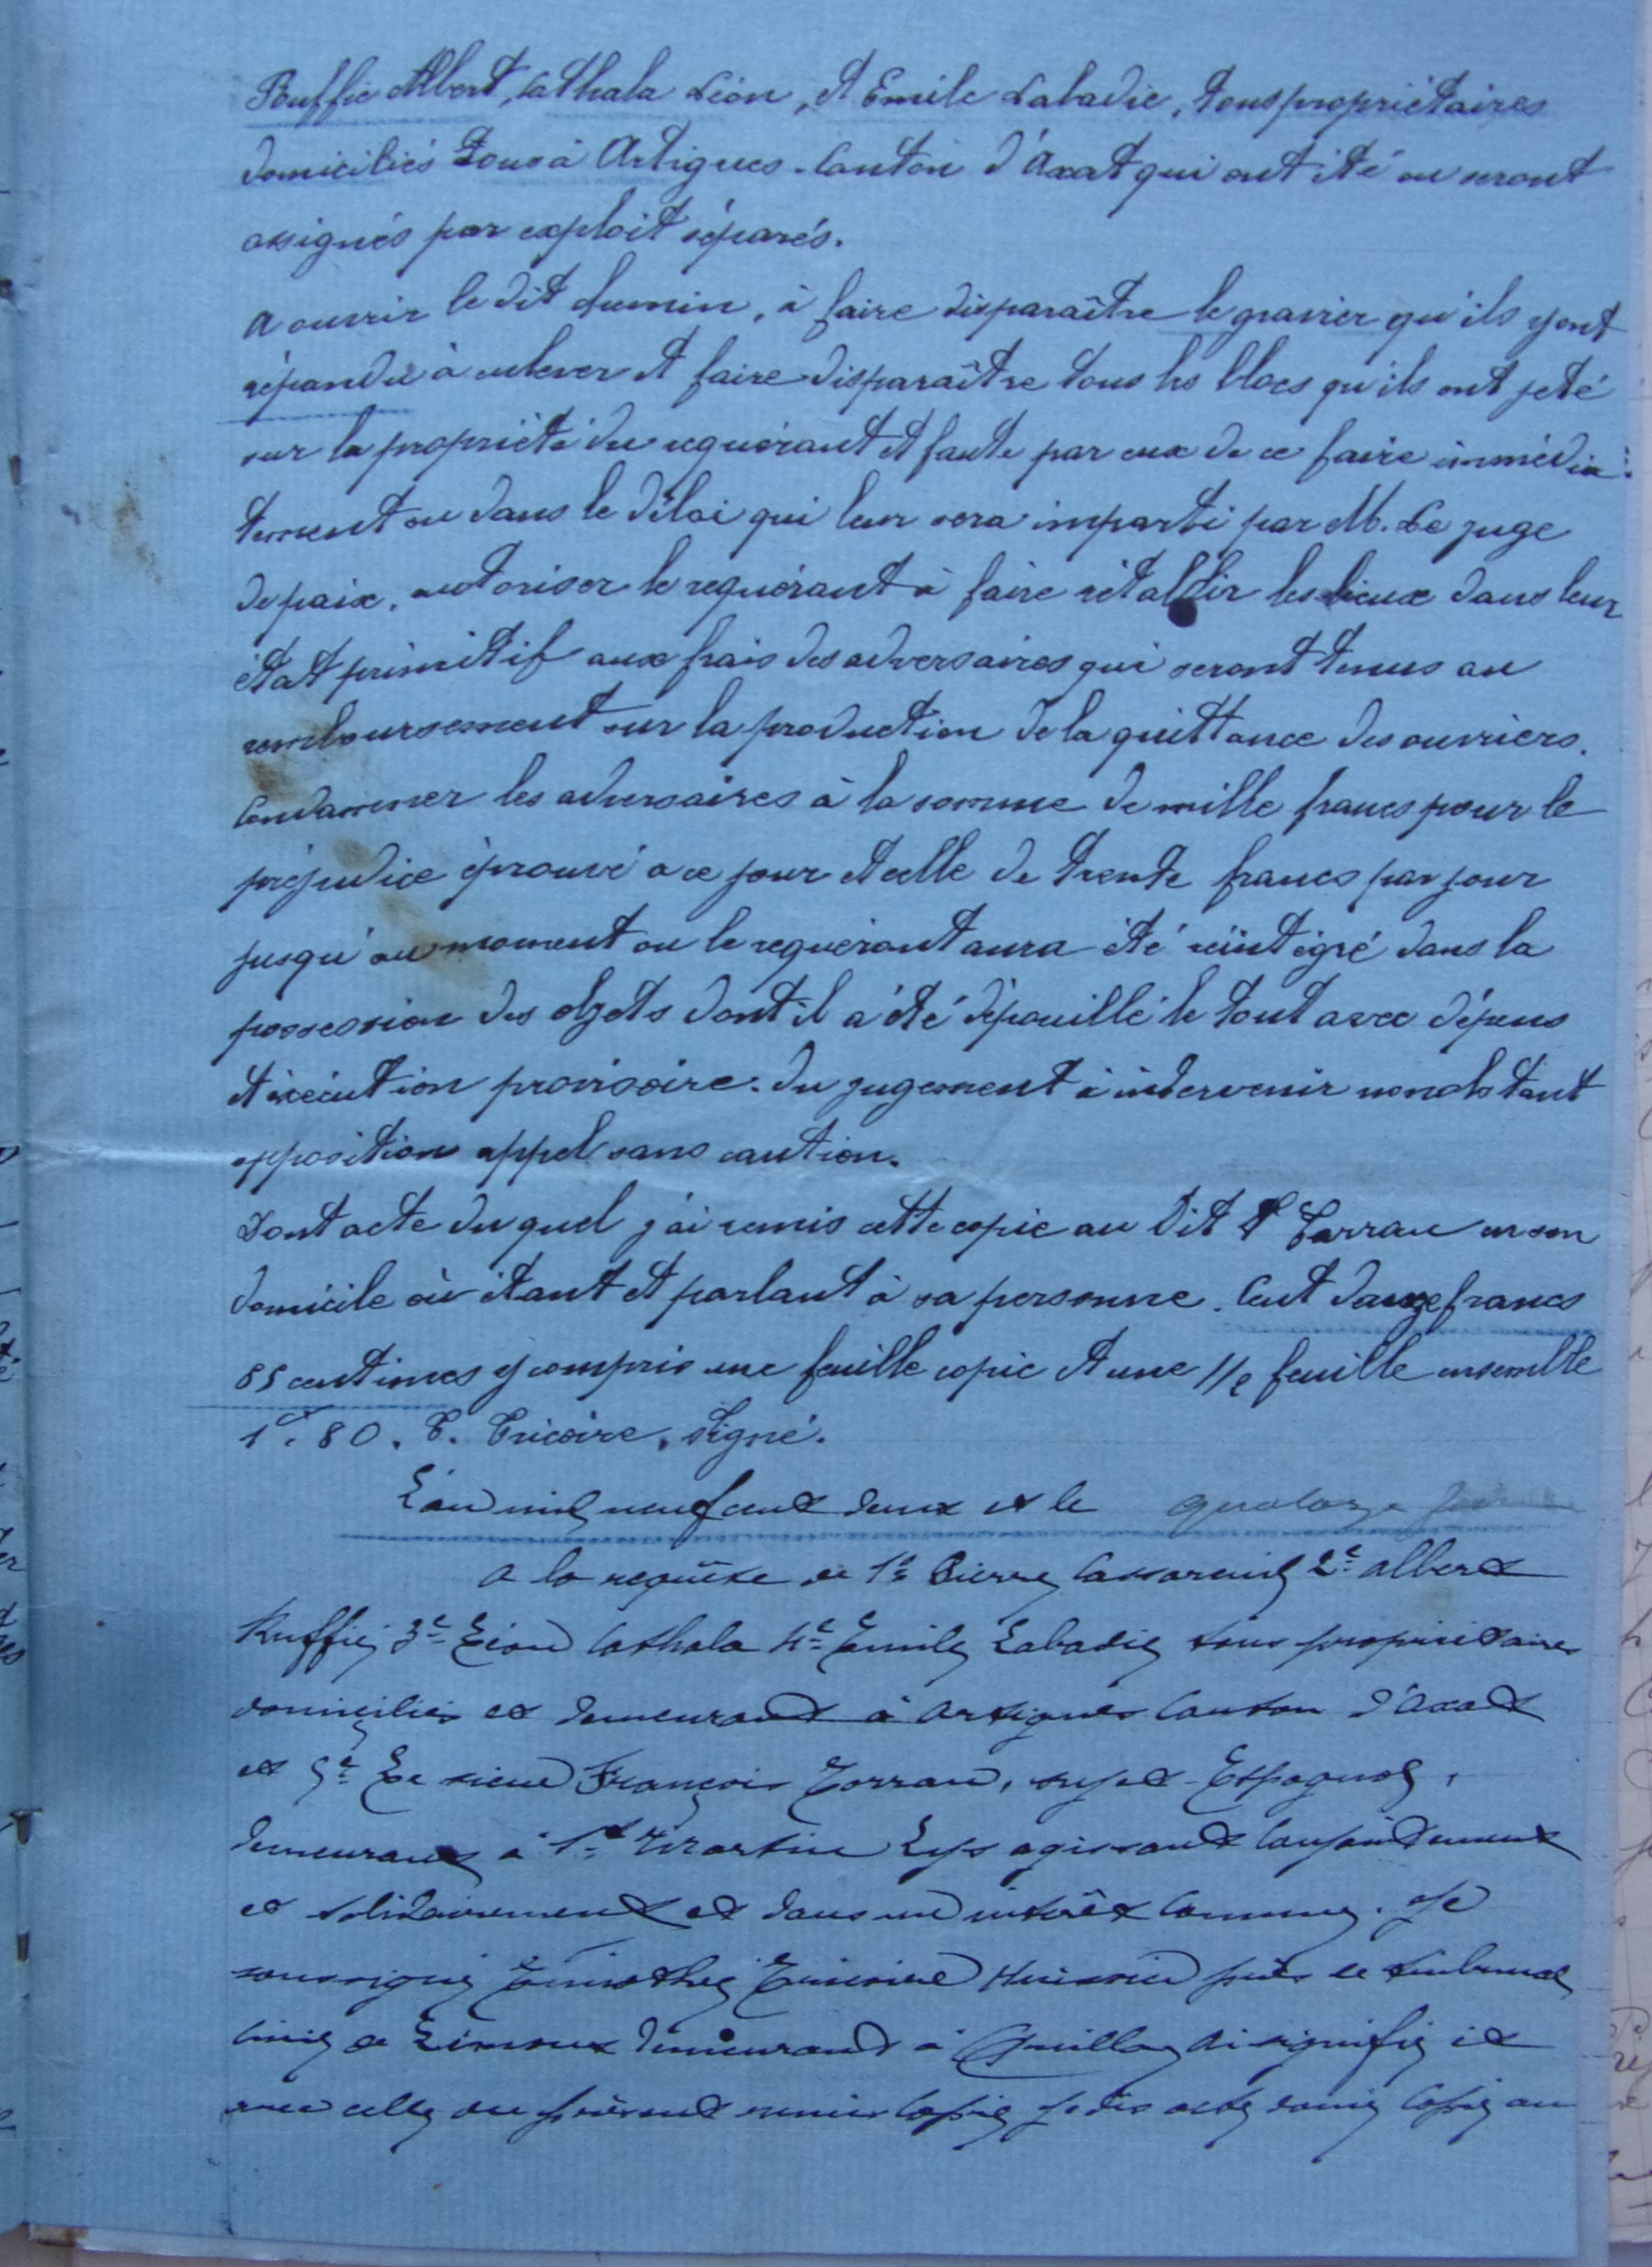 Rouffié Albert, Cathala Léon, et Emile Labadie, tous propriétaires
domiciliés tous à Artigues. Canton d'Axat qui ont été ou seront
assignés par exploit séparés.
A ouvrir le dit chemin, à faire disparaître le gravier qu'ils y ont
répandu à enlever et faire disparaître tous les blocs qu'ils ont jeté
sur la propriété du requérant et faute par eux de ce faire immédia-
tement ou dans le délai qui leur sera imparti par M. Le juge
de paix, autoriser le requérant à faire rétablir les lieux dans leur
état primitif aux frais des adversaires qui seront tenus au
remboursement sur la production de la quittance des ouvriers.
Condamner les adversaires à la somme de mille francs pour le
préjudice éprouvé a ce jour et celle de trente francs par jour
jusqu'au moment ou le requérant aura été réintégré dans la
possession des objets dont il a été dépouillé le tout avec dépens
et exécution provisoire. du jugement à intervenir nonobstant
opposition appel sans caution.
Dont acte du quel j'ai remis cette copie au dit Sr Tarrau en son
domicile où étant et parlant à sa personne. Cout francs
85 centimes y compris une feuille copie et une 1/2 feuille ensemble
1f. 80. T. Tricoire, signé.
L'an mil neuf cent deux et le quatorze juin
A la requête de 1° Pierre 2e Albert
Ruffié 3e Léon Cathala 4e Emile Labadie tous propriétaires
domiciliés et demeurant à Artigues Canton d'Axat
et 5e Le sieur François Torrau, sujet Espagnol,
demeurant à St Martin Lys agissant conjointement
et solidairement et dans un intérêt commun. Je
soussigné Timothée Tricoire Huissier près le tribunal
civil de Limoux demeurant à Quillan ai signifié et
avec celle du présent remis copie acte copie au